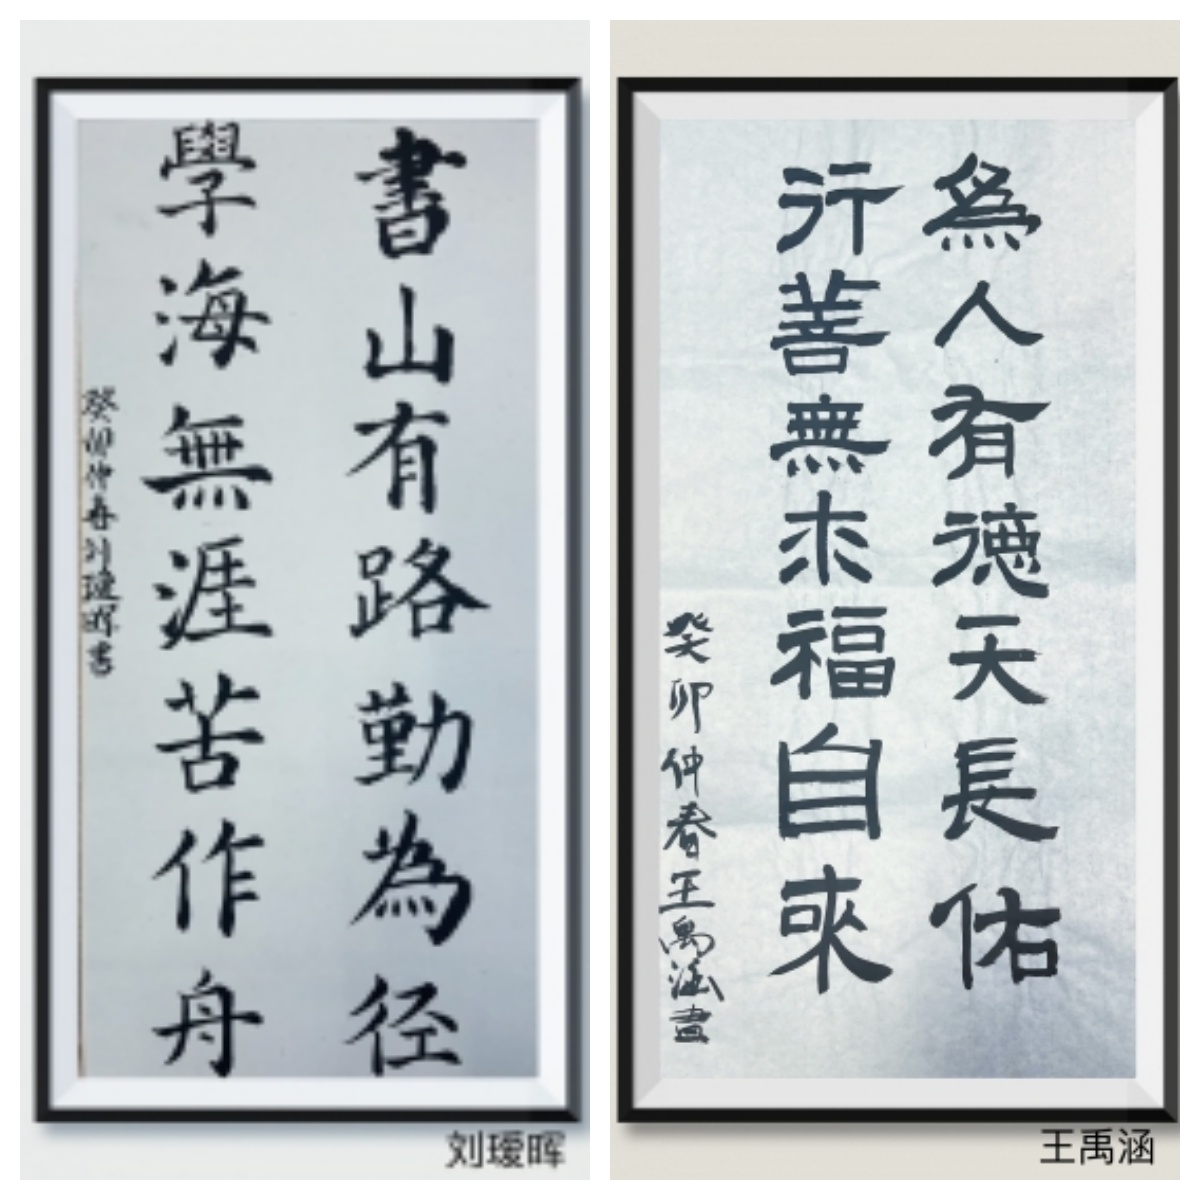 書山有路勤為径
學海無涯苦作舟
癸卯仲春刘瑷晖書
刘瑷晖
爲人有德天長佑
行善無求福自來
癸卯仲春王禹涵書
王禹涵